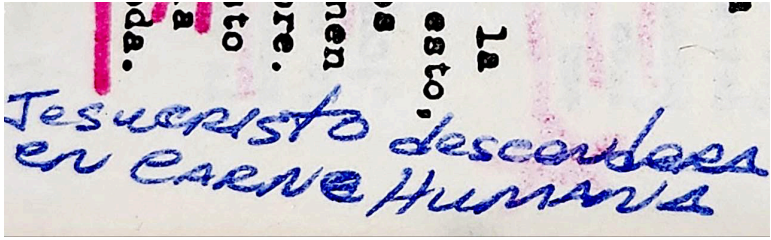 la
esto,
os
men
bre.
sto
la
da.
Jesucristo descendera
en CARNE HUMANA